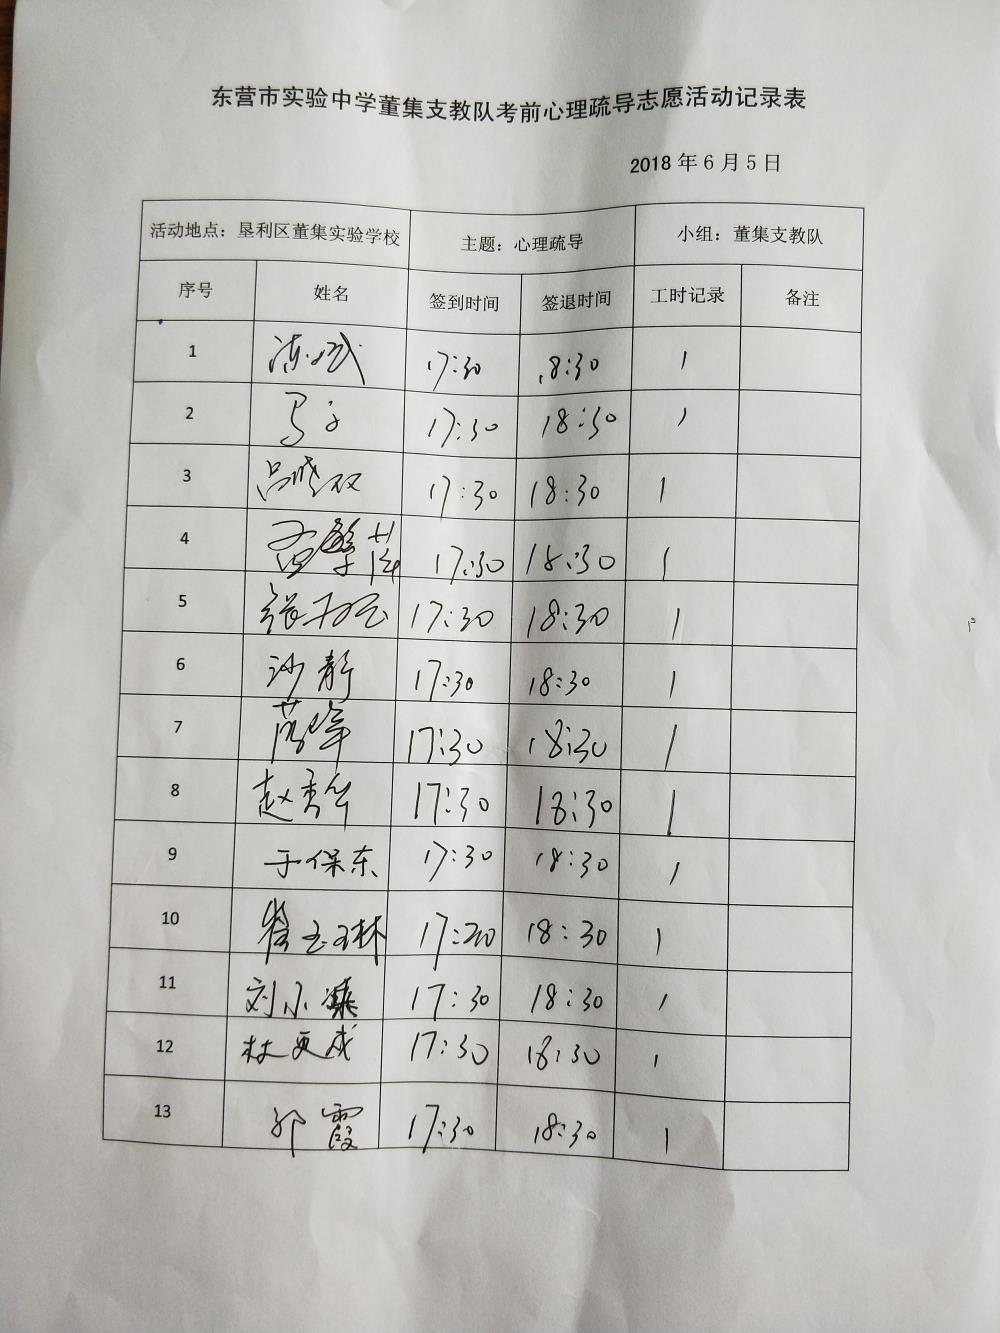 东营市实验中学董集支教队考前心理疏导志愿活动记录表
2018 年 6 月 5 日
活动地点：垦利区董集实验学校 主题：心理疏导 小组：董集支教队
序号 姓名 签到时间 签退时间 工时记录 备注
1 17:30 18:30 1
2 17:30 18:30 1
3 吕晓双 17:30 18:30 1
4 17:30 18:30 1
5 17:30 18:30 1
6 沙静 17:30 18:30 1
7 17:30 18:30 1
8 赵秀华 17:30 18:30 1
9 于保东 17:30 18:30 1
10 17:20 18:30 1
11 刘小 17:30 18:30 1
12 杜更成 17:30 18:30 1
13 霞 17:30 18:30 1